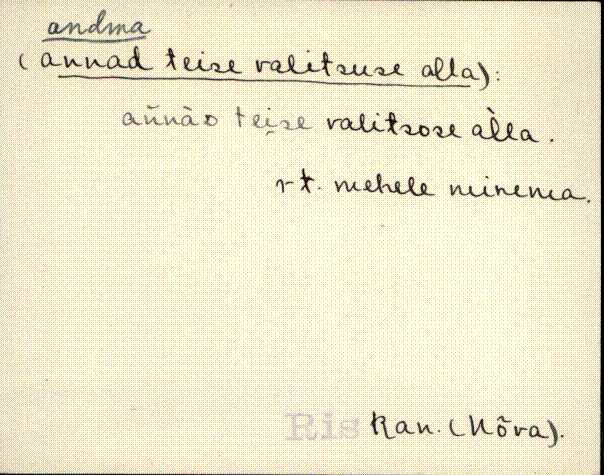 andma
(annad teise valitsuse alla):
ańnàs teise valitsose àlla.
rt. mehele minema.
Ris Ran. (Nõva).